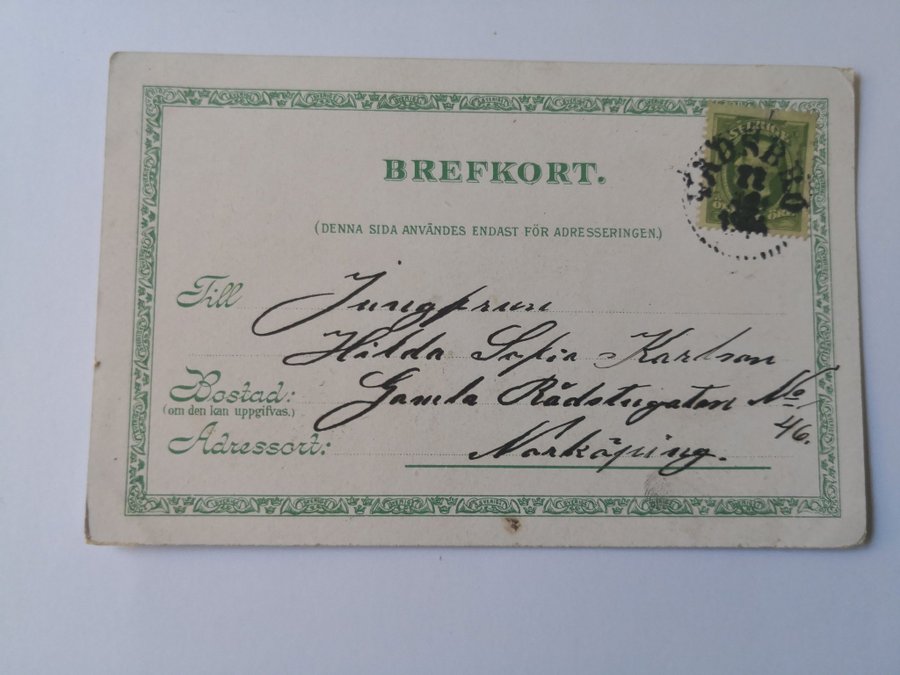 BREFKORT.
SVERIGE
(DENNA SIDA ANVÄNDES ENDAST FÖR ADRESSERINGEN.)
Till Jungfrun
Hilda Sofia Karlson
Bostad: Gamla Rådstugatan No 46.
(om den kan uppgifvas.)
Adressort: Norköping.